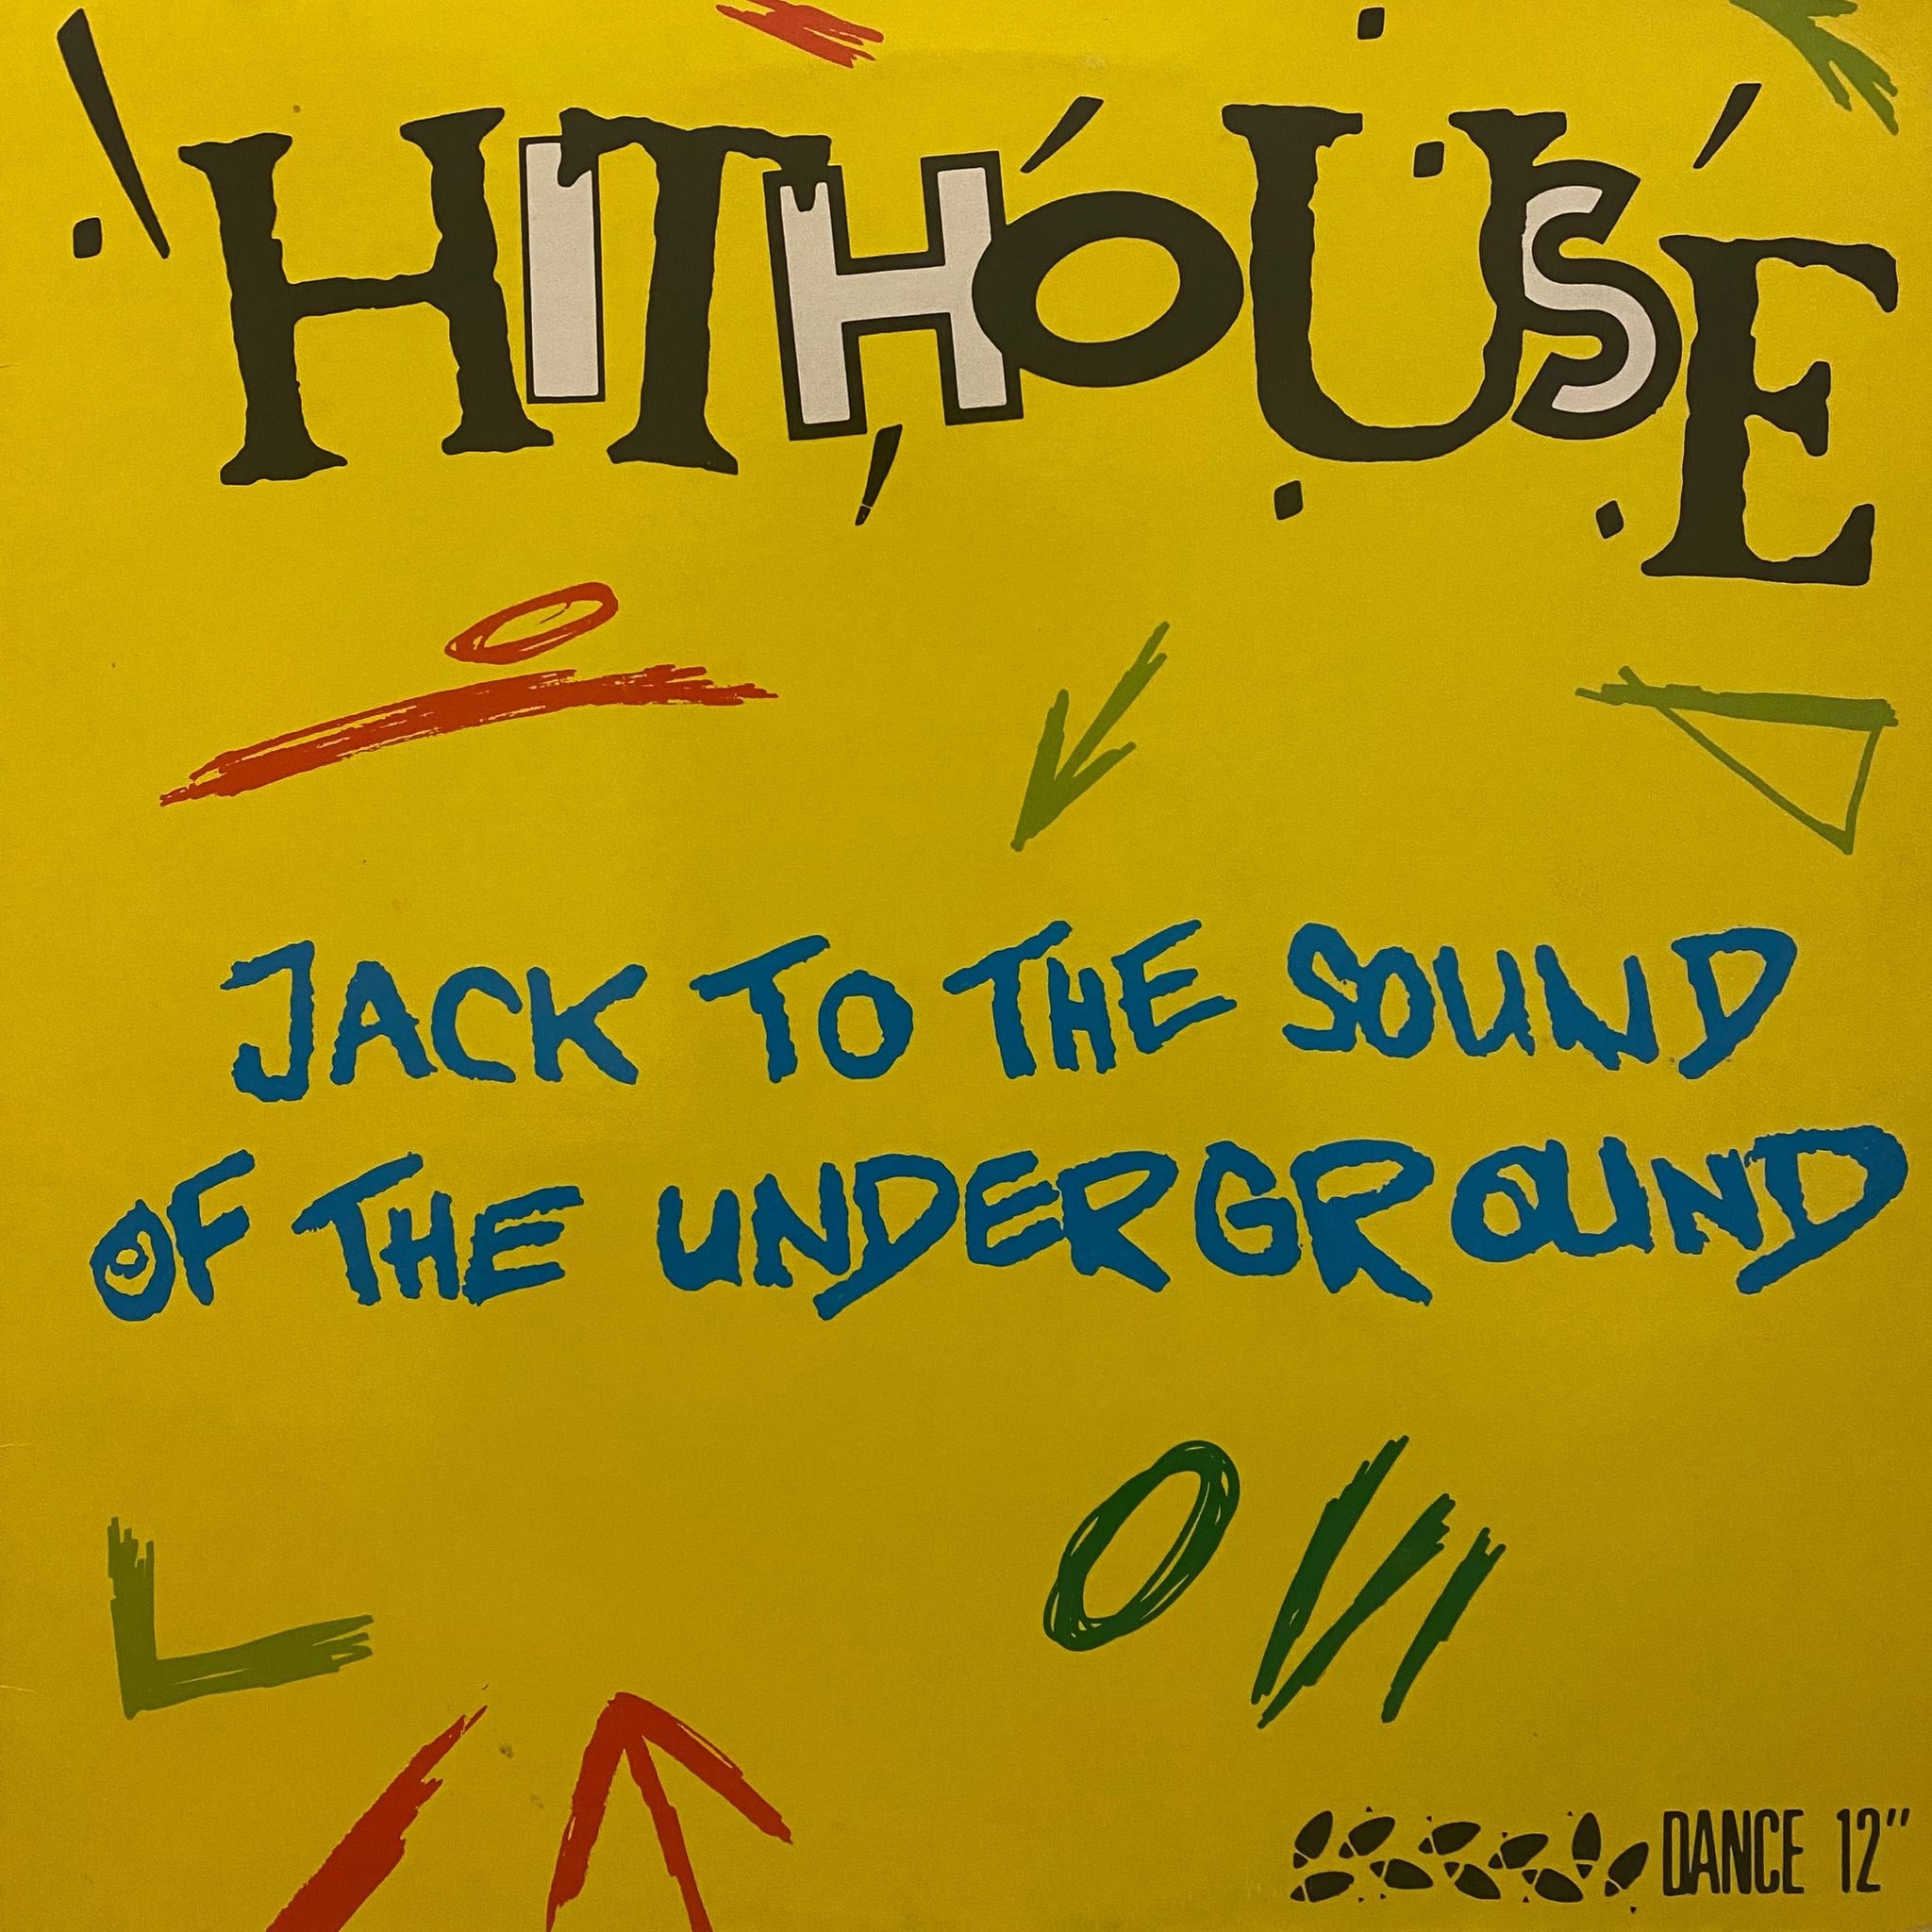 HITHOUSE
JACK TO THE SOUND
OF THE UNDERGROUND
DANCE 12"